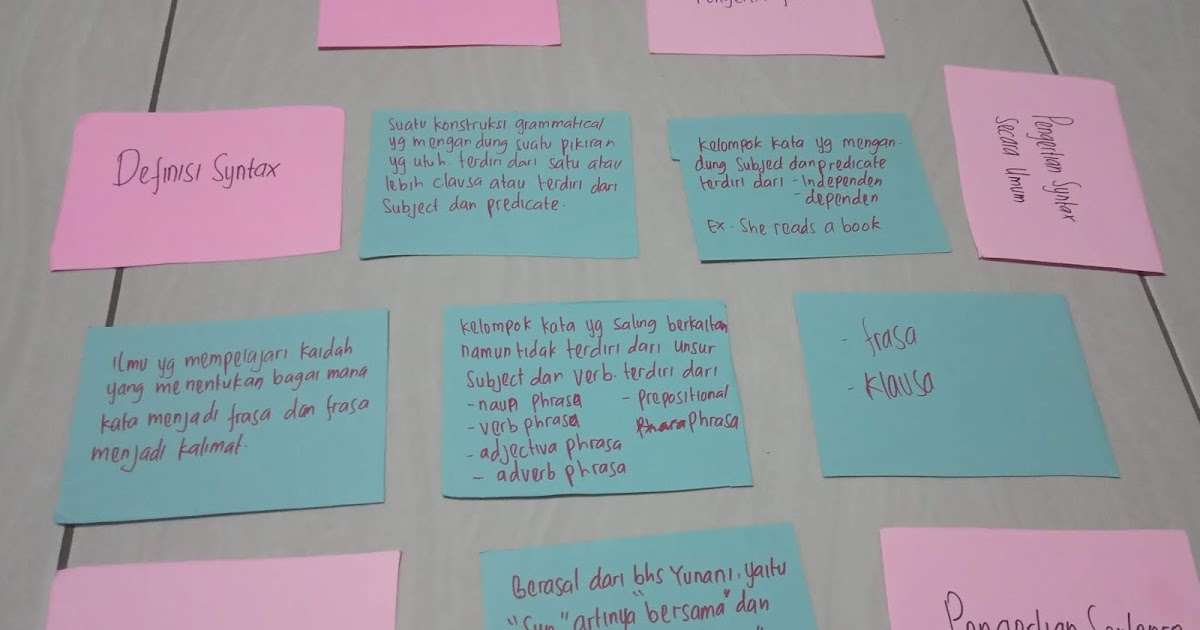 Definisi Syntax
Suatu konstruksi grammatical
yg mengandung suatu pikiran
yg utuh. terdiri dari satu atau
lebih clausa atau terdiri dari
Subject dan predicate.
Kelompok kata yg mengan-
dung Subject dan predicate
terdiri dari - Independen
- dependen
Ex. She reads a book
Pengertian Syntax
Secara Umum
Ilmu yg mempelajari kaidah
yang menentukan bagaimana
kata menjadi frasa dan frasa
menjadi kalimat.
Kelompok kata yg saling berkaitan
namun tidak terdiri dari unsur
Subject dan verb. terdiri dari
- naun phrasa - prepositional
- verb phrasa phrasa
- adjectiva phrasa
- adverb phrasa
- frasa
- Klausa
Berasal dari bhs Yunani, yaitu
"Sun" artinya "bersama" dan